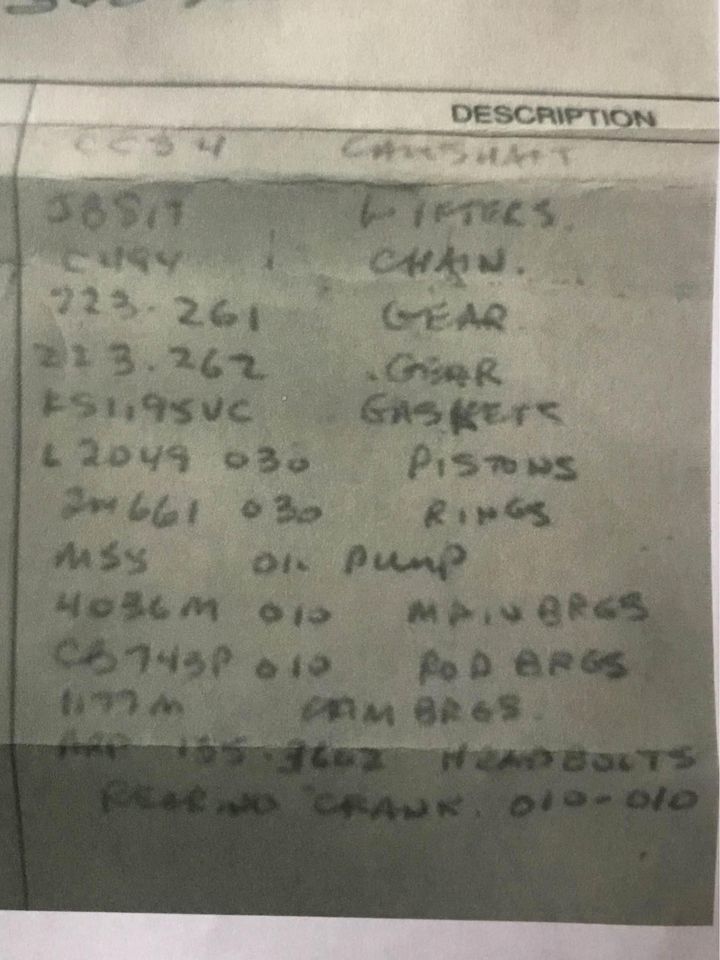 DESCRIPTION
CCS4 CAMSHAFT
J8817 LIFTERS.
C494 CHAIN.
223-261 GEAR
223.262 .GEAR
KS1195VC GASKETS
L2049 030 PISTONS
2M661 030 RINGS
M55 OIL PUMP
4036M 010 MAIN BRGS
CB743P 010 ROD BRGS
1177M CAM BRGS.
ARP HEADBOLTS
CRANK. 010-010